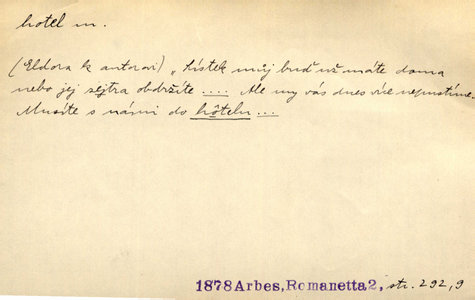 hotel m.
(Eldora k autorovi) „Lístek můj buď už máte doma
nebo jej zejtra obdržíte .... Ale my vás dnes více nepustíme.
Musíte s námi do hôtelu ...
1878 Arbes, Romanetta 2, str. 292,9